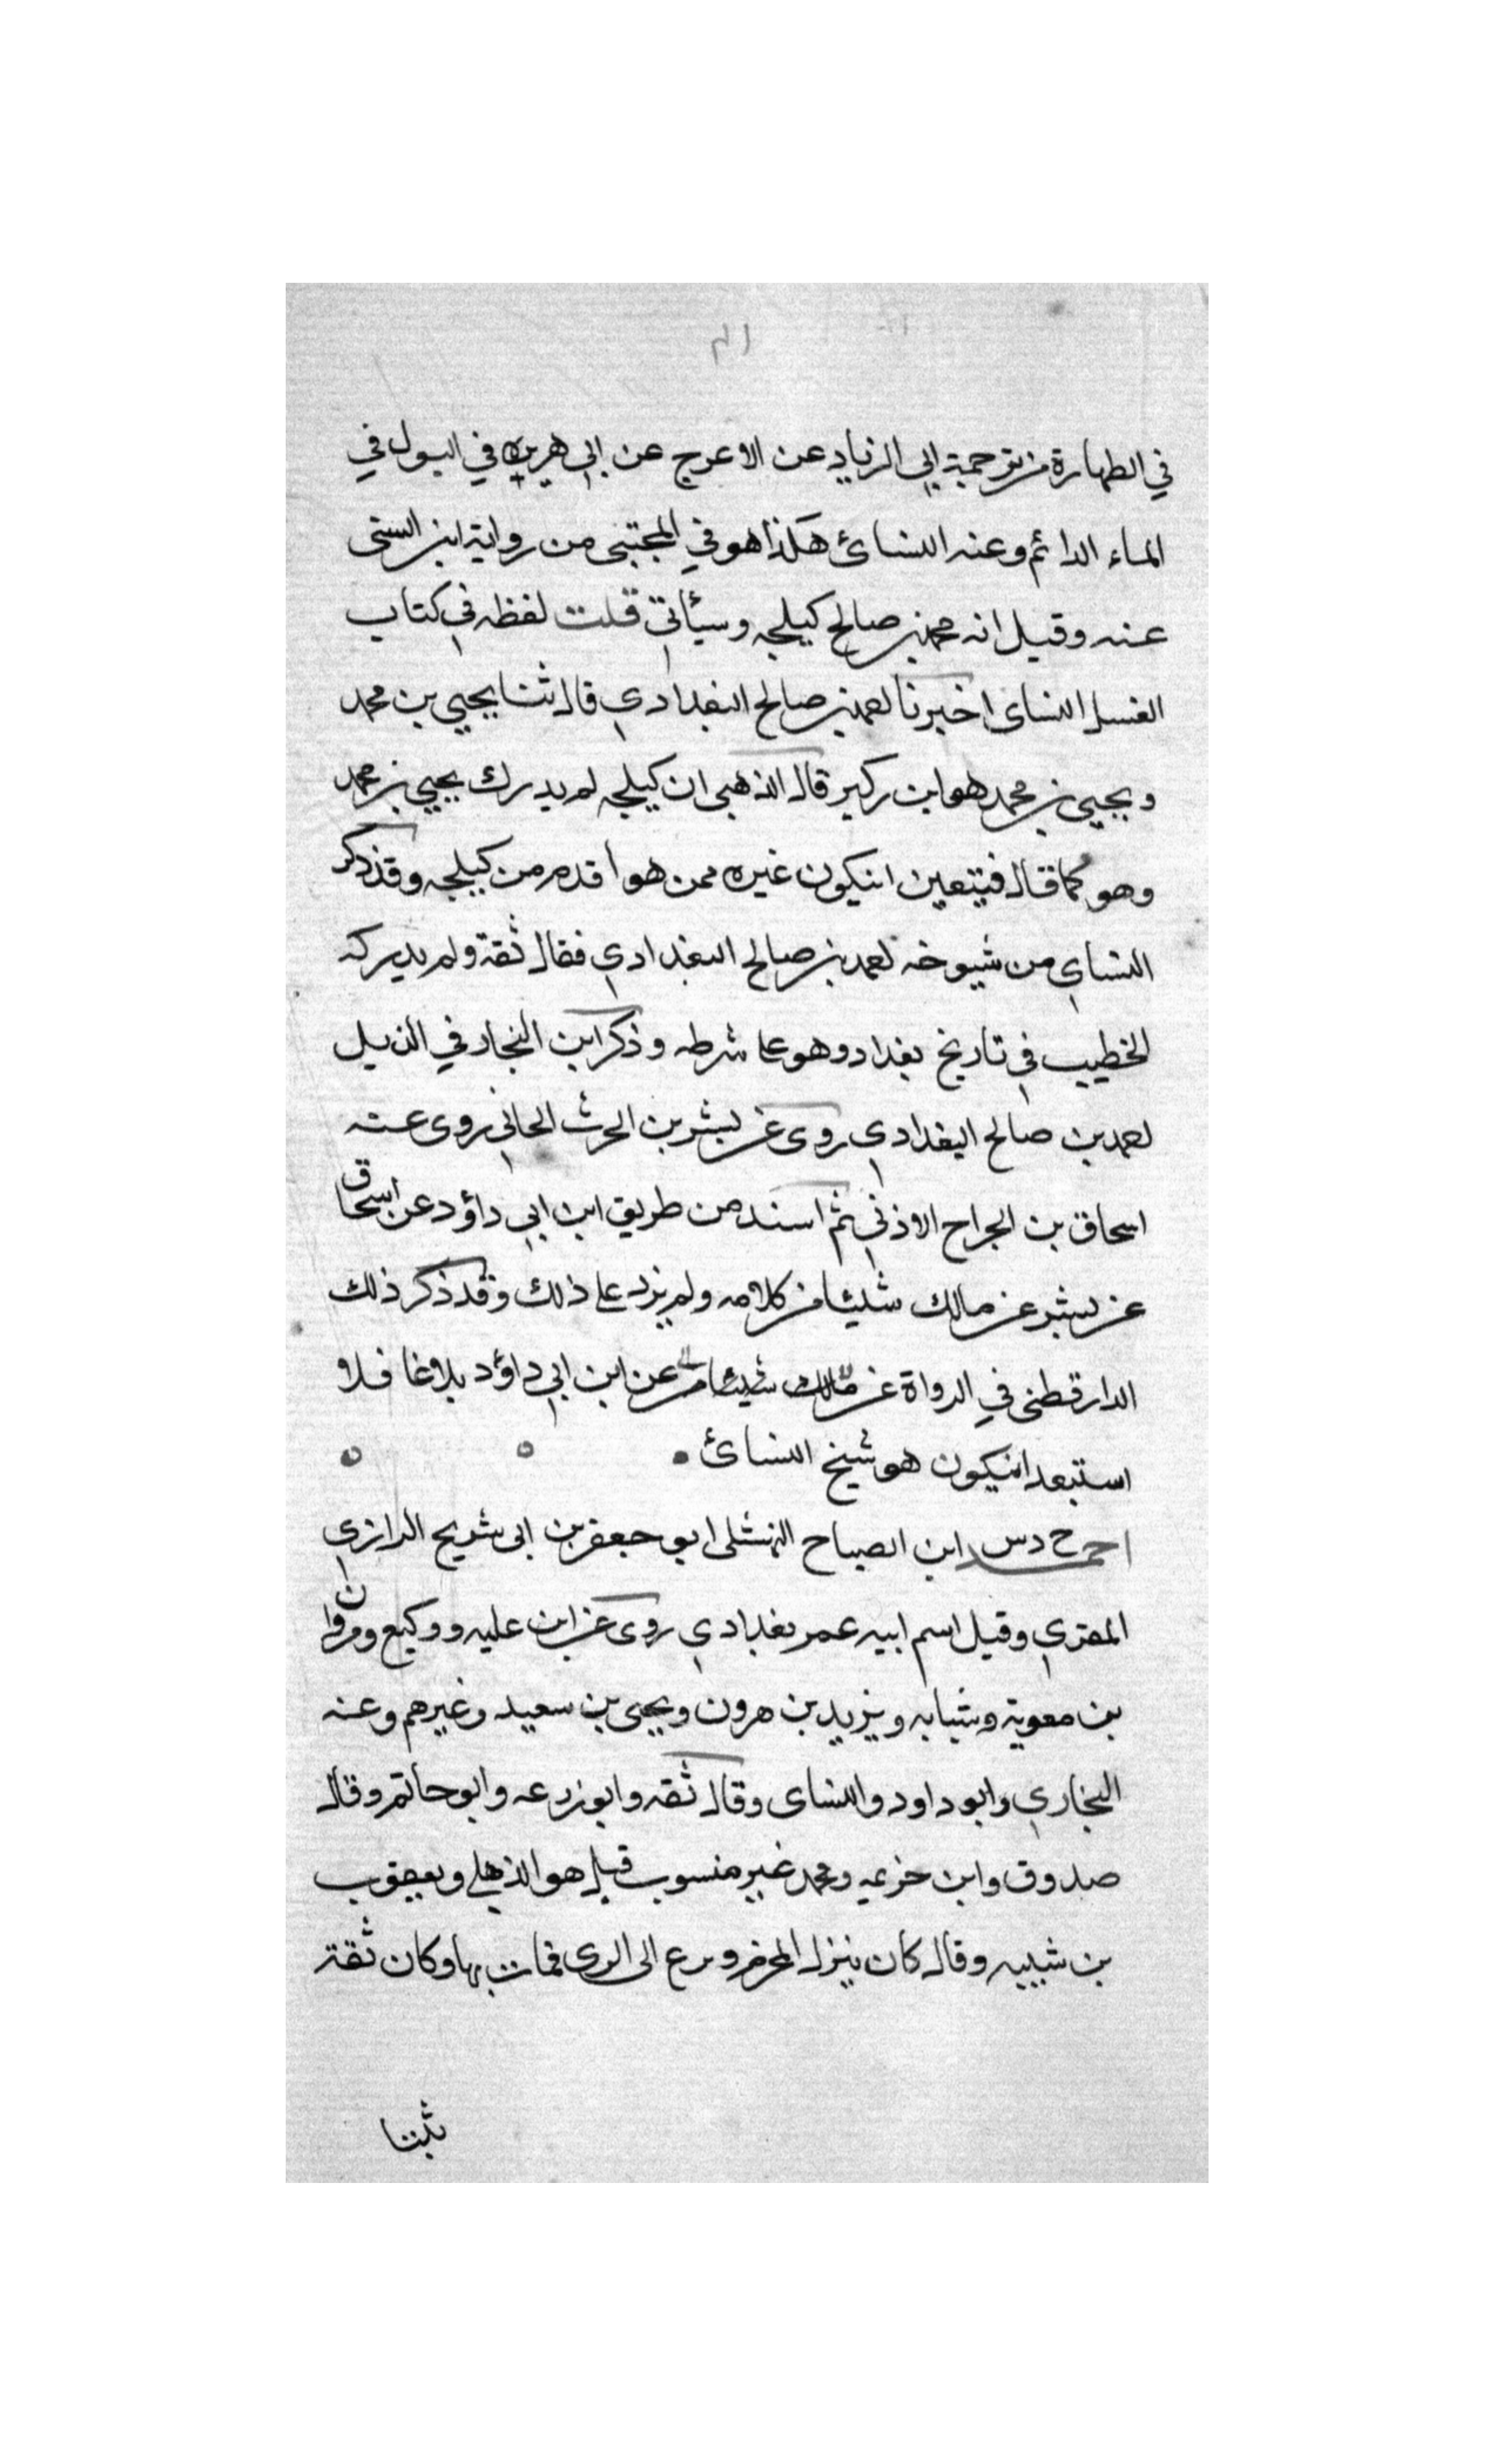 في الطهارة من ترجمة ابي الزناد عن الاعرج عن ابي هريره في البول في
الماء الدائم وعنه النسائ هكذا هو في المجتبى من رواية ابن السنى
عنه وقيل انه محمد بن صالح كيلجه وسيأتي قلت لفظه في كتاب
الغسل النساى اخبرنا احمد بن صالح البغدادي قال ثنا يحيي بن محمد
ويحيي بن محمد هو ابن زكير قال الذهبى ان كيلجه لم يدرك يحيي بن محمد
وهو كما قال فيتعين انيكون غيره ممن هو أقدم من كيلجه وقد ذكر
النساي من شيوخه احمد بن صالح البغدادي فقال ثقة ولم يذكره
الخطيب في تاريخ بغداد وهو على شرطه وذكر ابن النجار في الذيل
احمد بن صالح البغدادي روى عن بشر بن الحرث الحافي روى عنه
اسحاق بن الجراح الاذني ثم اسند من طريق ابن ابي داؤد عن اسحاق
عن بشر عن مالك شيئا من كلامه ولم يزد على ذلك وقد ذكر ذلك
الدارقطنى في الرواة عن مالك عن ابن ابي داؤد بلاغا فلا
استبعد انيكون هو شيخ النسائ
احمد خ د س ابن الصباح النهشلى ابو جعفر بن ابى شريح الرازي
المقري وقيل اسم ابيه عمر بغدادي روى عن ابن عليه ووكيع ومروان
بن معوية وشبابه ويزيد بن هرون ويحيى بن سعيد وغيرهم وعنه
البخاري وابو داود والنساى وقال ثقه وابو زرعه وابو حاتم وقال
صدوق وابن خزيمه ومحمد غير منسوب قيل هو الذهلي ويعقوب
بن شيبه وقال كان ينزل المخرم ورع الى الرى فمات بها وكان ثقة
ثبتا